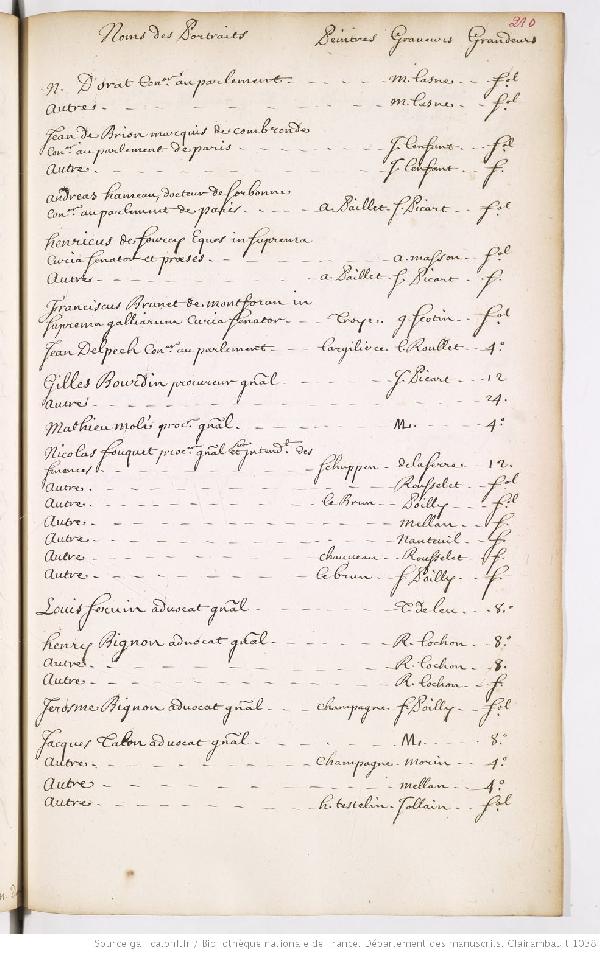 240
Noms des Portraits Peintres Graveurs Grandeurs
N. D'orat Con.er au parlement m. Lasne fol
Autres m. Lasne fol
Jean de Brion marquis de combronde
Con.er au parlement de paris J. Lenfant fol
Autre J. Lenfant f.
andreas hameau, docteur de sorbonne
Con.er au parlement de paris a. Paillet S. Picart fol
henricus de fourcy Eques in suprema
Curia senator et præses a. masson fol
Autre a. Paillet S. Picart f.
Franciscus Brunet de montforan in
suprema galliarum Curia senator Troye g. Scotin fol
Jean Delpech Con.er au parlement Largiliere C. Roullet 4°
Gilles Bourdin procureur gñal J. Picart 12
autres 24.
Mathieu molé proc.r gñal M. 4°
Nicolas fouquet proc.r gñal et surintend.t des
finances Schuppen delaserre 12.
Autre Rousselet fol
Autre le Brun Poilly fol
Autre mellan f.
Autre Nanteuil f.
Autre chauveau Rousselet f.
Autre le brun f. Poilly f.
Louis servin advocat gñal T. de leu 8.°
henry Bignon advocat gñal R. Lochon 8.°
Autre R. Lochon 8.
Autre R. Lochon f.
Jerosme Bignon advocat gñal champagne f. Poilly fol
Jacques Talon advocat gñal M. 8.°
Autre Champagne morin 4°
Autre mellan 4°
Autre h. testelin Jollain fol
Source gallica.bnf.fr / Bibliothèque nationale de France. Département des manuscrits. Clairambault 1038